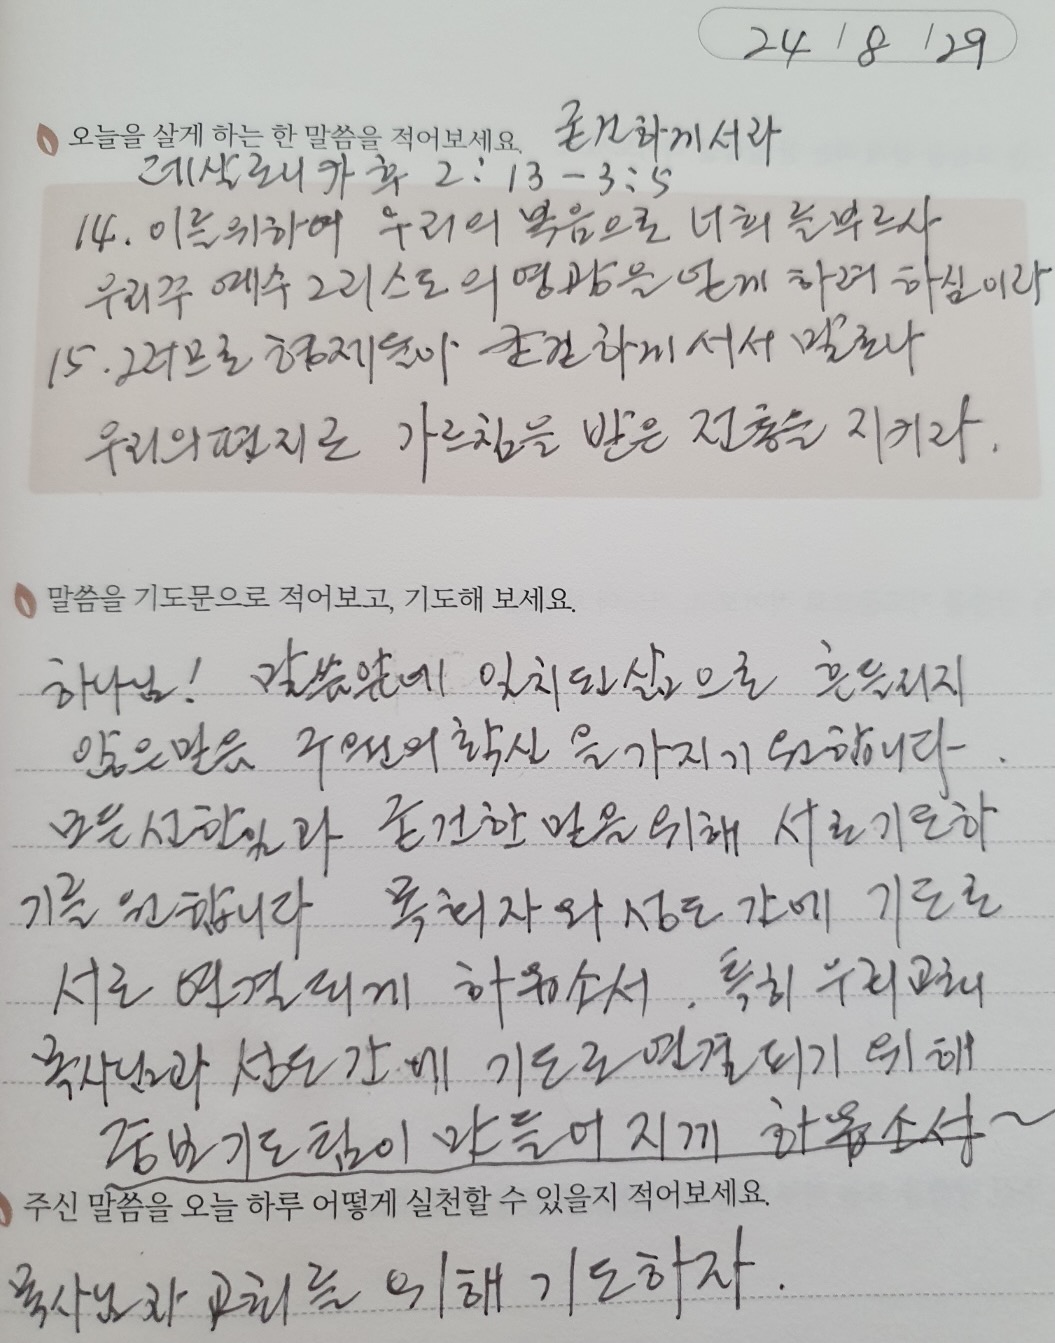 24 / 8 / 29
오늘을 살게 하는 한 말씀을 적어보세요. 굳건하게 서라
데살로니가 후 2:13-3:5
14. 이를 위하여 우리의 복음으로 너희를 부르사
우리 주 예수 그리스도의 영광을 얻게 하려 하심이라
15. 그러므로 형제들아 굳건하게 서서 말로나
우리의 편지로 가르침을 받은 전통을 지키라.
말씀을 기도문으로 적어보고, 기도해 보세요.
하나님! 말씀앞에 일치된 삶으로 흔들리지
않은 믿음 구원의 확신을 가지기 원합니다.
모든 선한일과 굳건한 믿음 위해 서로 기도하
기를 원합니다 목회자와 성도 간에 기도로
서로 연결되게 하옵소서. 특히 우리 교회
목사님과 성도 간에 기도로 연결되기 위해
중보기도팀이 만들어 지게 하옵소서~
주신 말씀을 오늘 하루 어떻게 실천할 수 있을지 적어보세요.
목사님과 교회를 위해 기도하자.